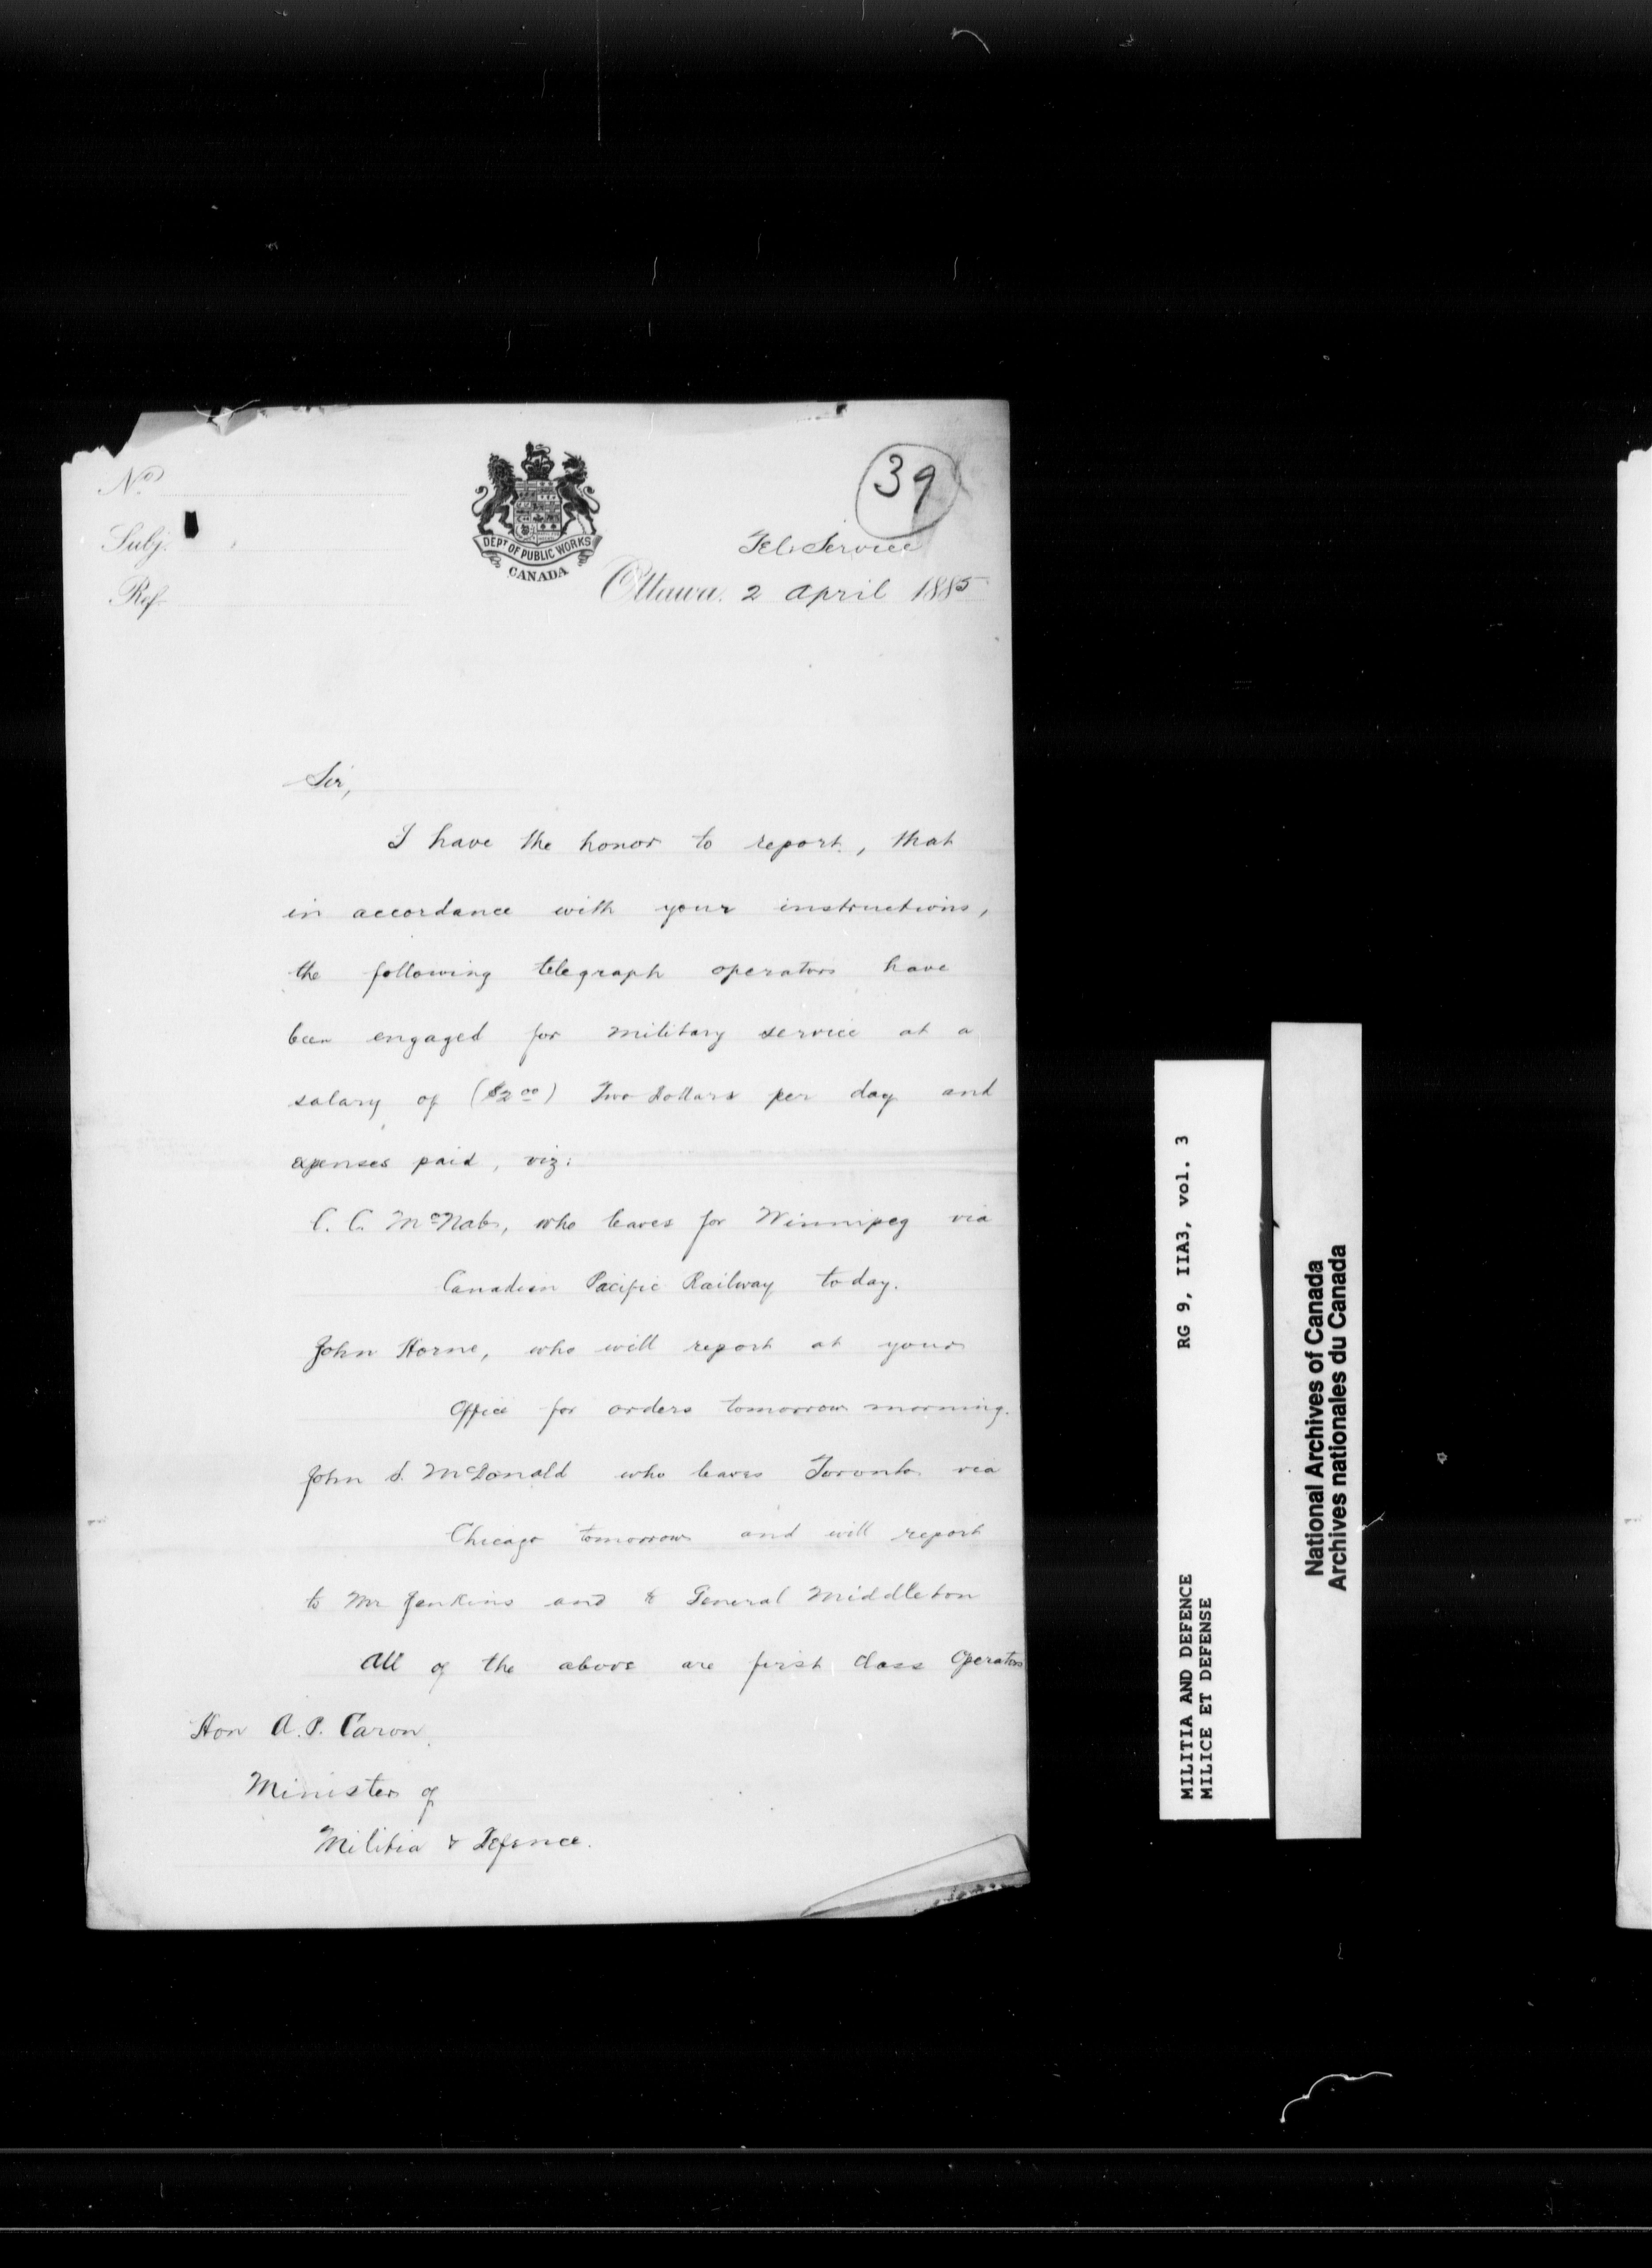 No
39
Subj.
DEPT OF PUBLIC WORKS
CANADA
Tel. Service
Ref.
Ottawa. 2 April 1885
Sir,
I have the honor to report, that
in accordance with your instructions,
the following telegraph operators have
been engaged for military service at a
salary of ($2 00) Two Dollars per day and
expenses paid, viz:
C. C. McNab, who leaves for Winnipeg via
Canadian Pacific Railway to day.
John Horne, who will report at your
Office for orders tomorrow morning.
John S. McDonald who leaves Toronto via
Chicago tomorrow and will report
to Mr Jenkins and to General Middleton
All of the above are first class Operators
Hon A. P. Caron,
Minister of
Militia & Defence.
MILITIA AND DEFENCE RG 9, IIA3, vol. 3
MILICE ET DEFENSE
National Archives of Canada
Archives nationales du Canada